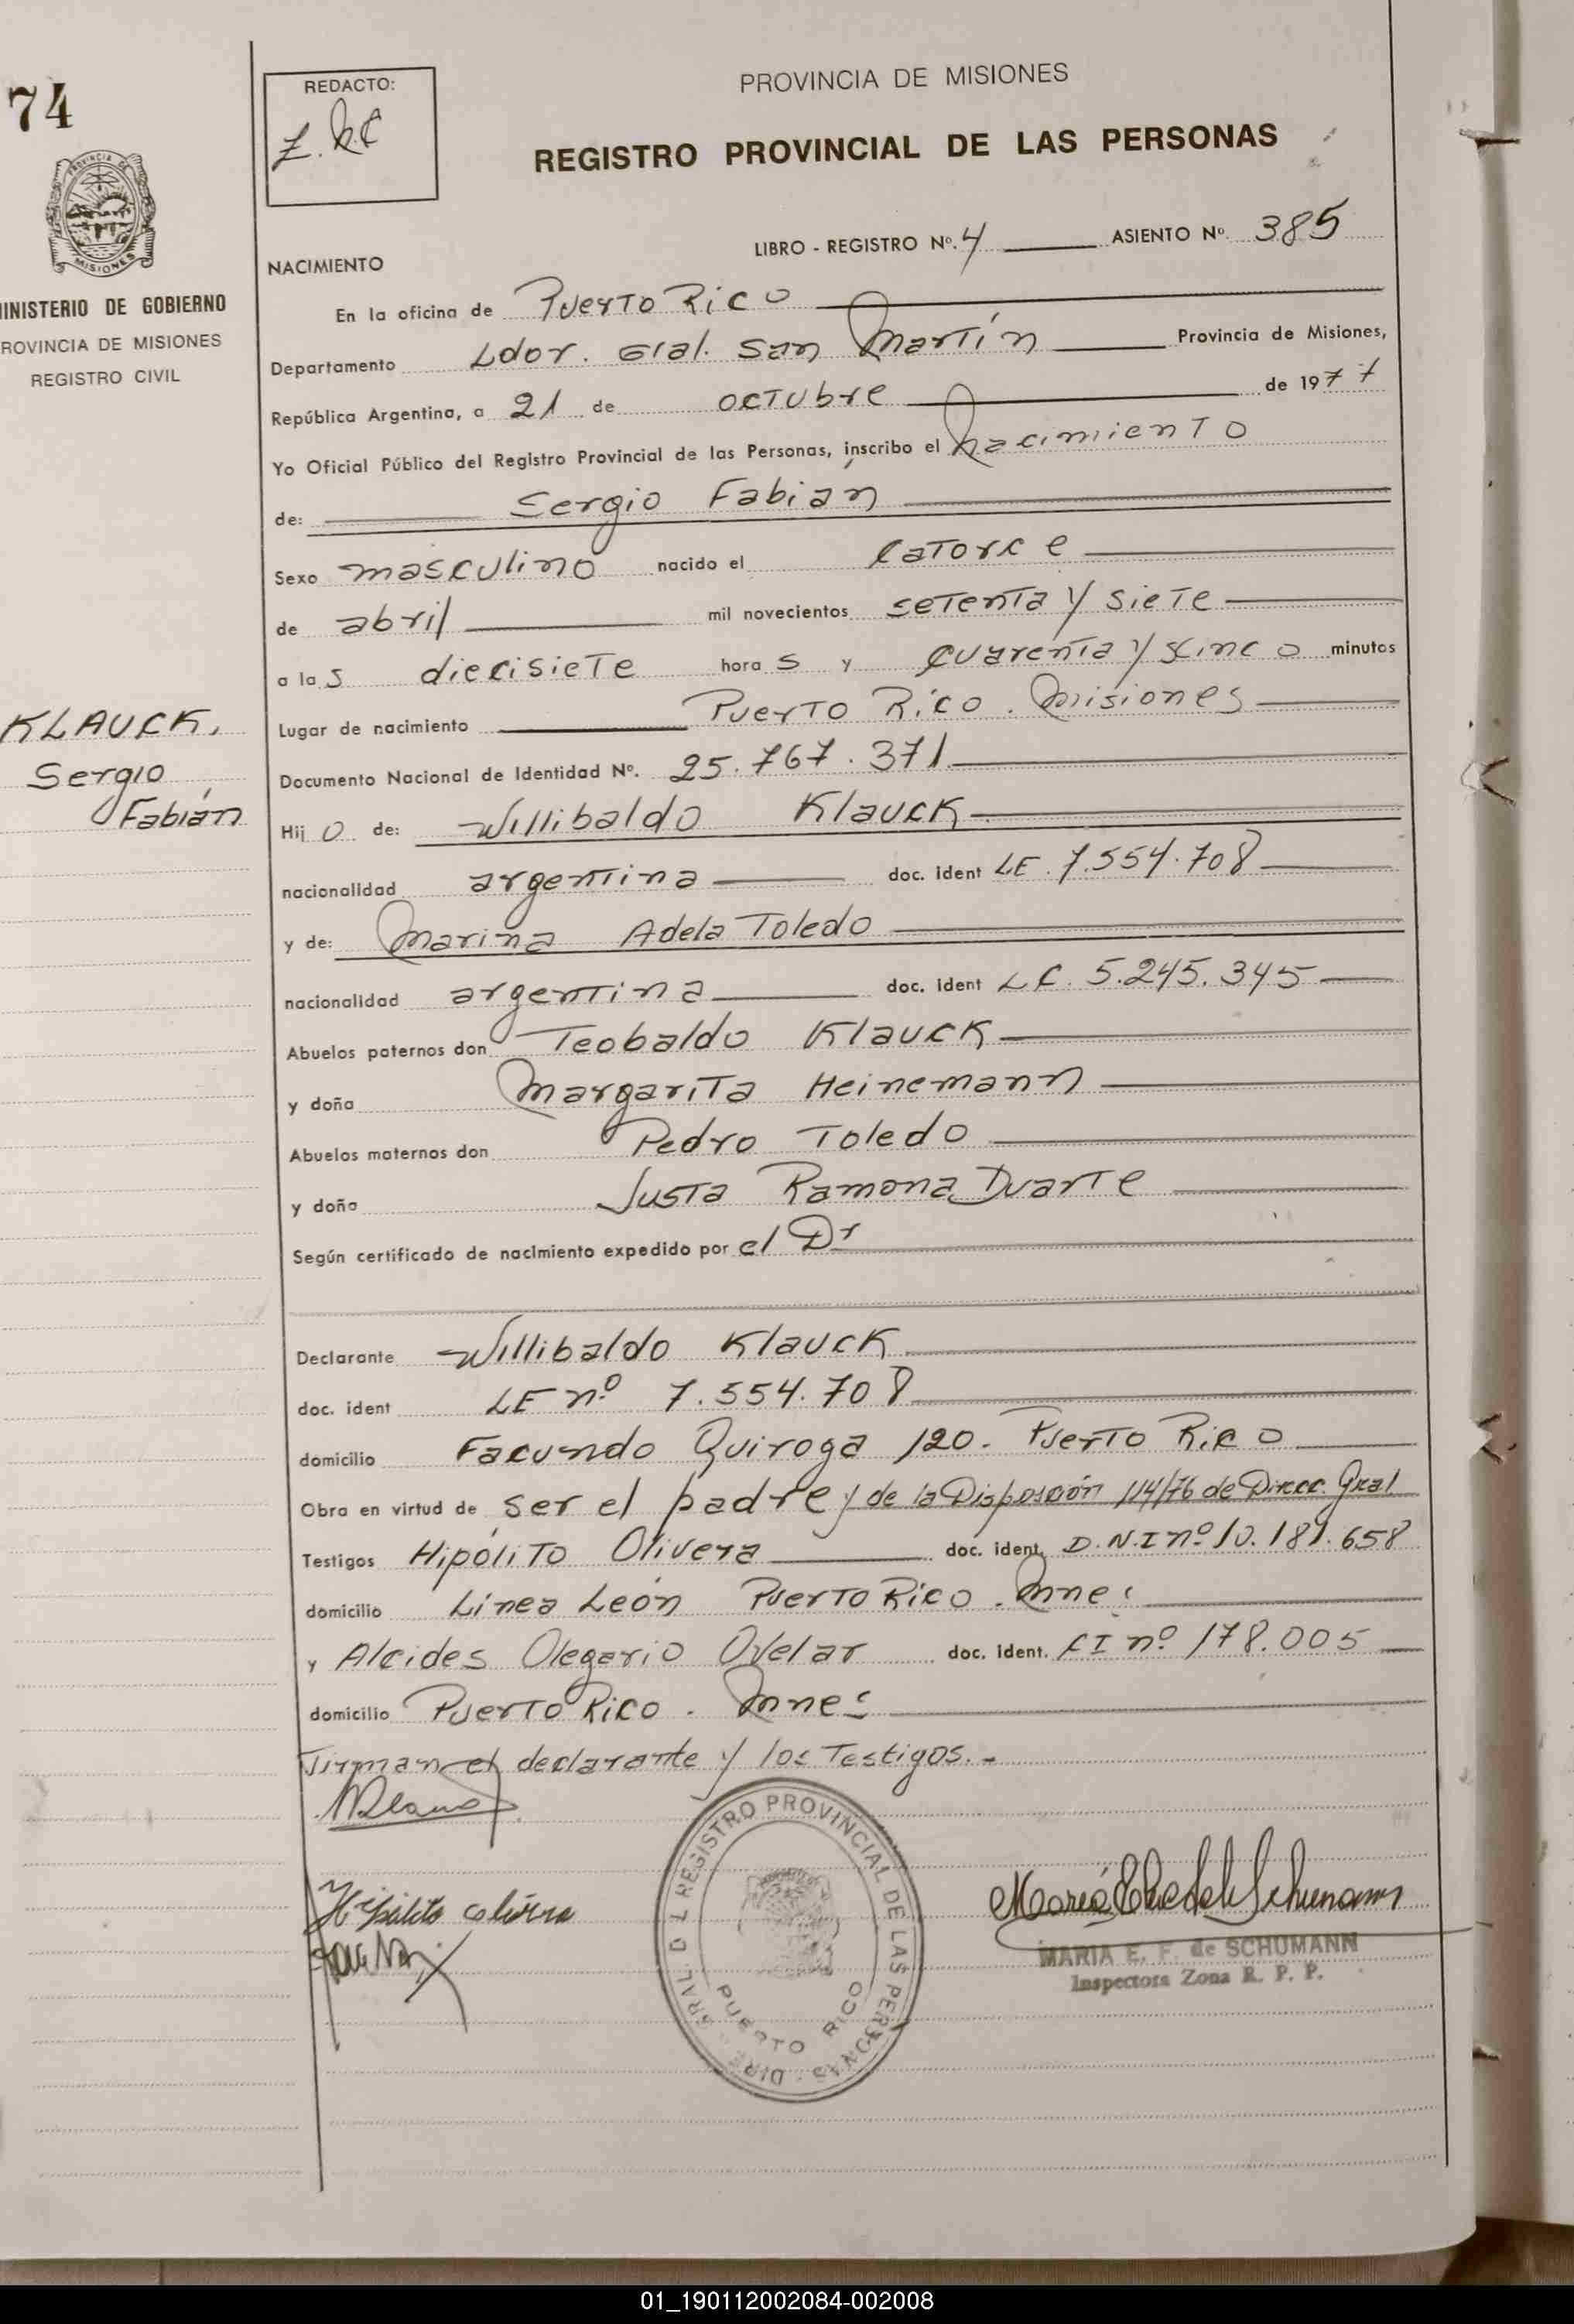 74
REDACTO:
PROVINCIA DE MISIONES
REGISTRO PROVINCIAL DE LAS PERSONAS
PROVINCIA DE
MISIONES
INISTERIO DE GOBIERNO
ROVINCIA DE MISIONES
REGISTRO CIVIL
LIBRO - REGISTRO Nº. 4 ASIENTO Nº. 385
NACIMIENTO
En la oficina de Puerto Rico
Departamento Ldor. Gral. San Martín Provincia de Misiones,
República Argentina, a 21 de octubre de 1977
Yo Oficial Público del Registro Provincial de las Personas, inscribo el nacimiento
de: Sergio Fabián
Sexo masculino nacido el catorce
de abril mil novecientos setenta y siete
a las diecisiete horas y cuarenta y cinco minutos
Lugar de nacimiento Puerto Rico. Misiones
KLAUCK,
Sergio
Fabián
Documento Nacional de Identidad Nº. 25.767.371
Hijo de: Willibaldo Klauck
nacionalidad argentina doc. ident LE. 7.554.708
y de: Marina Adela Toledo
nacionalidad argentina doc. ident LC. 5.245.345
Abuelos paternos don Teobaldo Klauck
y doña Margarita Heinemann
Abuelos maternos don Pedro Toledo
y doña Justa Ramona Duarte
Según certificado de nacimiento expedido por el Dr
Declarante Willibaldo Klauck
doc. ident LE nº 7.554.708
domicilio Facundo Quiroga 120. Puerto Rico
Obra en virtud de ser el padre y de la Disposición 114/76 de Direcc. Gral
Testigos Hipólito Olivera doc. ident. D.N.I nº 10.181.658
domicilio Línea León Puerto Rico. Mnes
y Alcides Olegario Ovelar doc. ident. CI nº 178.005
domicilio Puerto Rico. Mnes
Firman el declarante y los testigos.-
REGISTRO PROVINCIAL DE LAS PERSONAS
PUERTO RICO
MARIA E. F. de SCHUMANN
Inspectora Zona R. P. P.
01_190112002084-002008